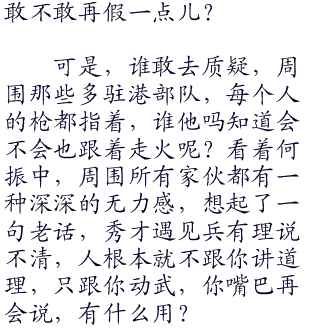 敢不敢再假一点儿？
可是，谁敢去质疑，周
围那些多驻港部队，每个人
的枪都指着，谁他吗知道会
不会也跟着走火呢？看着何
振中，周围所有家伙都有一
种深深的无力感，想起了一
句老话，秀才遇见兵有理说
不清，人根本就不跟你讲道
理，只跟你动武，你嘴巴再
会说，有什么用？